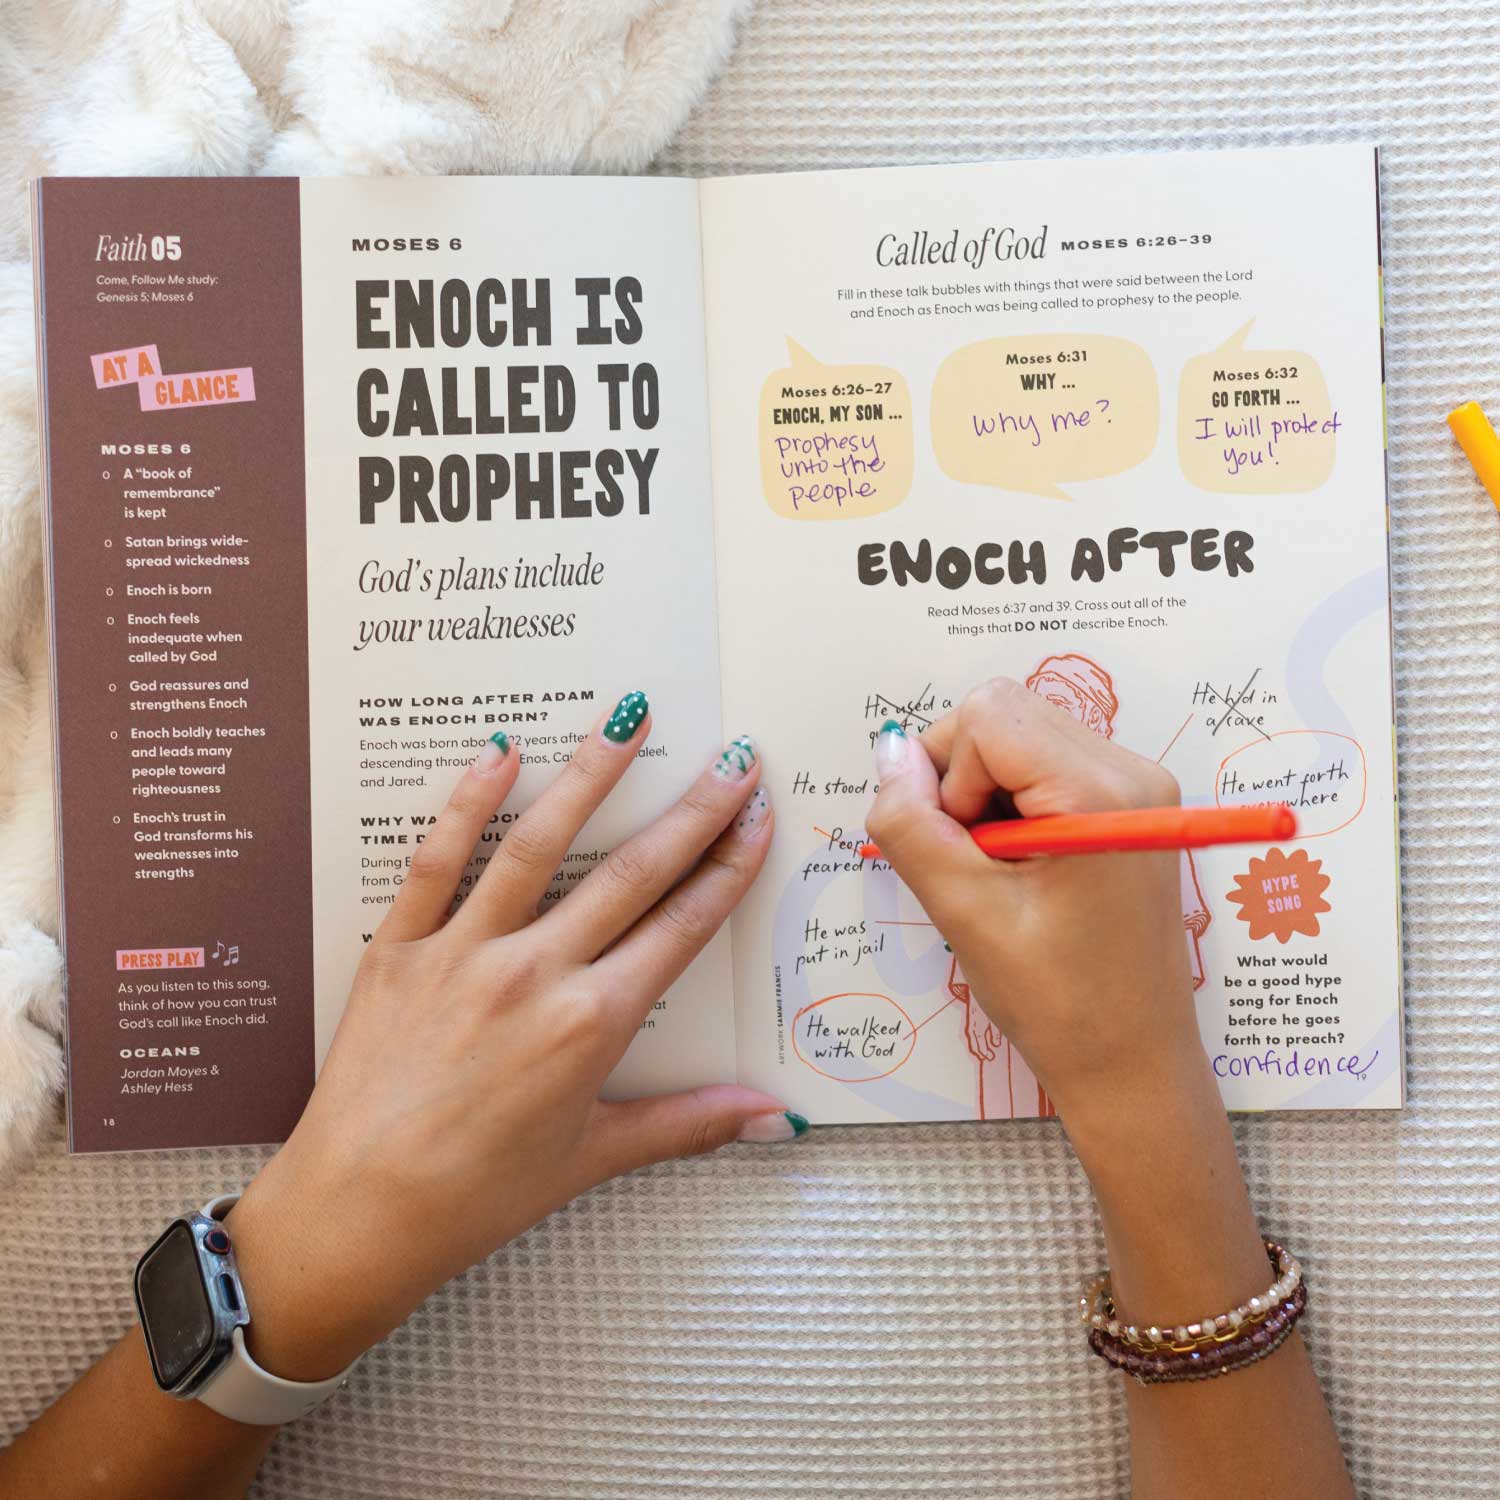 Faith 05
Come, Follow Me study:
Genesis 5; Moses 6
AT A
GLANCE
MOSES 6
o A “book of
remembrance”
is kept
o Satan brings wide-
spread wickedness
o Enoch is born
o Enoch feels
inadequate when
called by God
o God reassures and
strengthens Enoch
o Enoch boldly teaches
and leads many
people toward
righteousness
o Enoch’s trust in
God transforms his
weaknesses into
strengths
PRESS PLAY
As you listen to this song,
think of how you can trust
God’s call like Enoch did.
OCEANS
Jordan Moyes &
Ashley Hess
18
MOSES 6
ENOCH IS
CALLED TO
PROPHESY
God’s plans include
your weaknesses
HOW LONG AFTER ADAM
WAS ENOCH BORN?
Enoch was born years after
descending Enos,
and Jared.
WHY
TIME
During
from
Called of God MOSES 6:26–39
Fill in these talk bubbles with things that were said between the Lord
and Enoch as Enoch was being called to prophesy to the people.
Moses 6:26–27
ENOCH, MY SON ...
prophesy
unto the
people
Moses 6:31
WHY ...
why me?
Moses 6:32
GO FORTH ...
I will protect
you!
ENOCH AFTER
Read Moses 6:37 and 39. Cross out all of the
things that DO NOT describe Enoch.
He used a
He hid in
a cave
He stood
He went forth
everywhere
feared
He was
put in jail
He walked
with God
ARTWORK SAMMIE FRANCIS
HYPE
SONG
What would
be a good hype
song for Enoch
before he goes
forth to preach?
Confidence
19